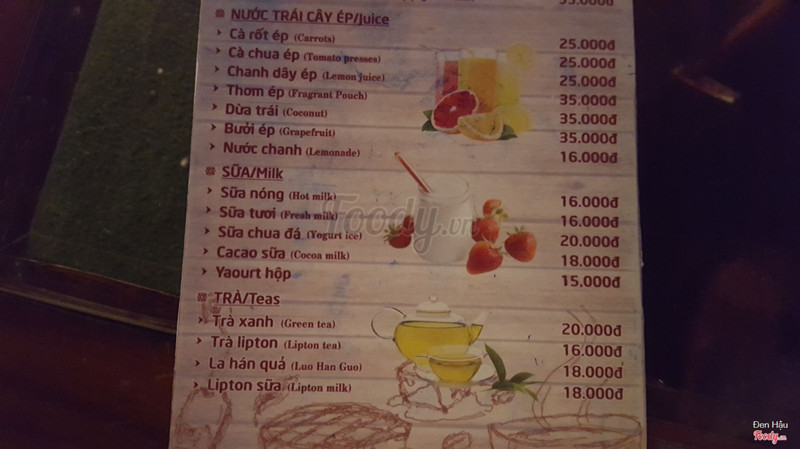 35.000đ
NƯỚC TRÁI CÂY ÉP/Juice
Cà rốt ép (Carrots) 25.000đ
Cà chua ép (Tomato presses) 25.000đ
Chanh dây ép (Lemon juice) 25.000đ
Thơm ép (Fragrant Pouch) 35.000đ
Dừa trái (Coconut) 35.000đ
Bưởi ép (Grapefruit) 35.000đ
Nước chanh (Lemonade) 16.000đ
SỮA/Milk
Sữa nóng (Hot milk) 16.000đ
Sữa tươi (Fresh milk) 16.000đ
Sữa chua đá (Yogurt ice) 20.000đ
Cacao sữa (Cocoa milk) 18.000đ
Yaourt hộp 15.000đ
Foody.vn
TRÀ/Teas
Trà xanh (Green tea) 20.000đ
Trà lipton (Lipton tea) 16.000đ
La hán quả (Luo Han Guo) 18.000đ
Lipton sữa (Lipton milk) 18.000đ
Đen Hậu
Foody.vn